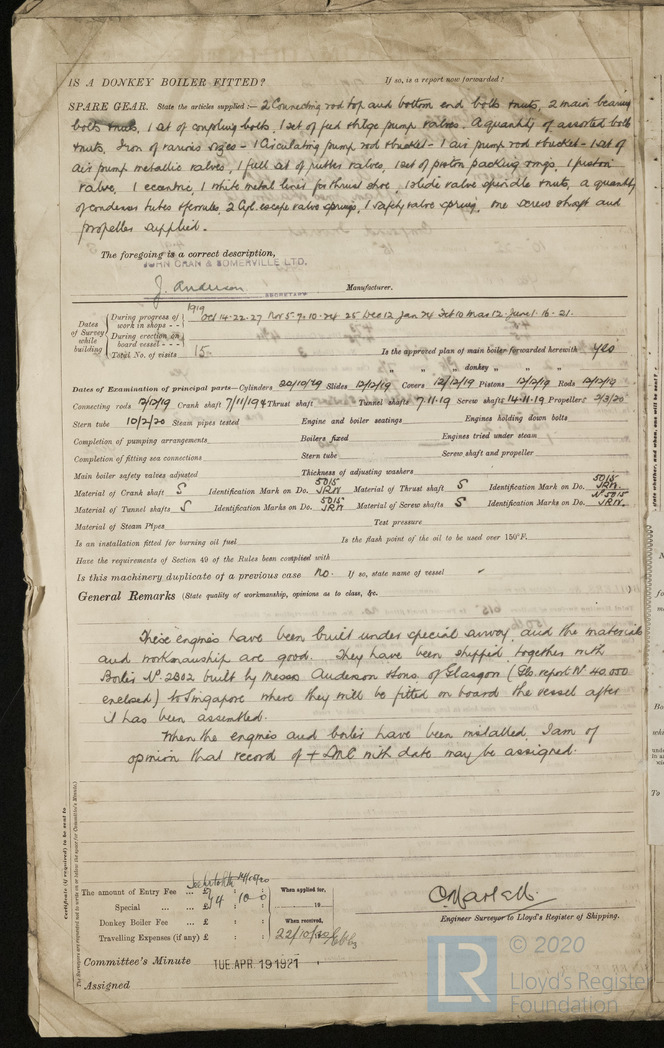 IS A DONKEY BOILER FITTED? If so, is a report now forwarded?
SPARE GEAR. State the articles supplied:— 2 Connecting rod top and bottom end bolts & nuts, 2 main bearing
bolts & nuts, 1 set of coupling bolts, 1 set of feed & bilge pump valves. A quantity of assorted bolts
& nuts, Iron of various sizes - 1 Circulating pump rod & bucket - 1 air pump rod & bucket - 1 set of
air pump metallic valves, 1 full set of rubber valves, 1 set of piston packing rings, 1 piston
valve, 1 eccentric, 1 white metal liner for thrust shoe, 1 slide valve spindle & nuts, a quantity
of condenser tubes & ferrules, 2 Cyl. escape valve springs, 1 safety valve spring, one screw shaft and
propeller supplied.
The foregoing is a correct description,
JOHN CRAN & SOMERVILLE LTD.
J. Anderson Manufacturer.
SECRETARY
1919
Dates of Survey while building
During progress of work in shops - - Oct 14-22-27 Nov 5-7-10-24-25 Dec 12 Jan 24 Feb 10 Mar 12. June 1-16-21.
During erection on board vessel - - -
Total No. of visits 15 Is the approved plan of main boiler forwarded herewith yes
" " " donkey " " "
Dates of Examination of principal parts—Cylinders 20/10/19 Slides 12/12/19 Covers 12/12/19 Pistons 12/12/19 Rods 12/12/19
Connecting rods 12/12/19 Crank shaft 7/11/19 Thrust shaft Tunnel shafts 7.11.19 Screw shaft 14.11.19 Propeller 2/3/20
Stern tube 10/2/20 Steam pipes tested Engine and boiler seatings Engines holding down bolts
Completion of pumping arrangements Boilers fixed Engines tried under steam
Completion of fitting sea connections Stern tube Screw shaft and propeller
Main boiler safety valves adjusted Thickness of adjusting washers
Material of Crank shaft S Identification Mark on Do. 5015 JRN Material of Thrust shaft S Identification Mark on Do. 5015 JRN.
Material of Tunnel shafts S Identification Marks on Do. 5015 JRN Material of Screw shafts S Identification Marks on Do. No 5015 JRN.
Material of Steam Pipes Test pressure
Is an installation fitted for burning oil fuel Is the flash point of the oil to be used over 150°F.
Have the requirements of Section 49 of the Rules been complied with
Is this machinery duplicate of a previous case No. If so, state name of vessel
General Remarks (State quality of workmanship, opinions as to class, &c.
These engines have been built under special survey, and the materials
and workmanship are good. They have been shipped together with
Boiler No. 2302 built by Messrs Anderson & Sons. of Glasgow (Gls. report No 40.000
enclosed) to Singapore where they will be fitted on board the vessel after
it has been assembled.
When the engines and boiler have been installed, I am of
opinion that record of + LMC with date may be assigned.
Certificate (if required) to be sent to
The Surveyors are requested not to write on or below the space for Committee's Minute.
The amount of Entry Fee ... £ : :
Special ... ... £ 14 : 10 : 0
Donkey Boiler Fee ... £ : :
Travelling Expenses (if any) £ : :
When applied for,
19
When received,
22/10/20
Engineer Surveyor to Lloyd's Register of Shipping.
Committee's Minute TUE. APR. 19 1921
Assigned
LR © 2020
Lloyd's Register
Foundation